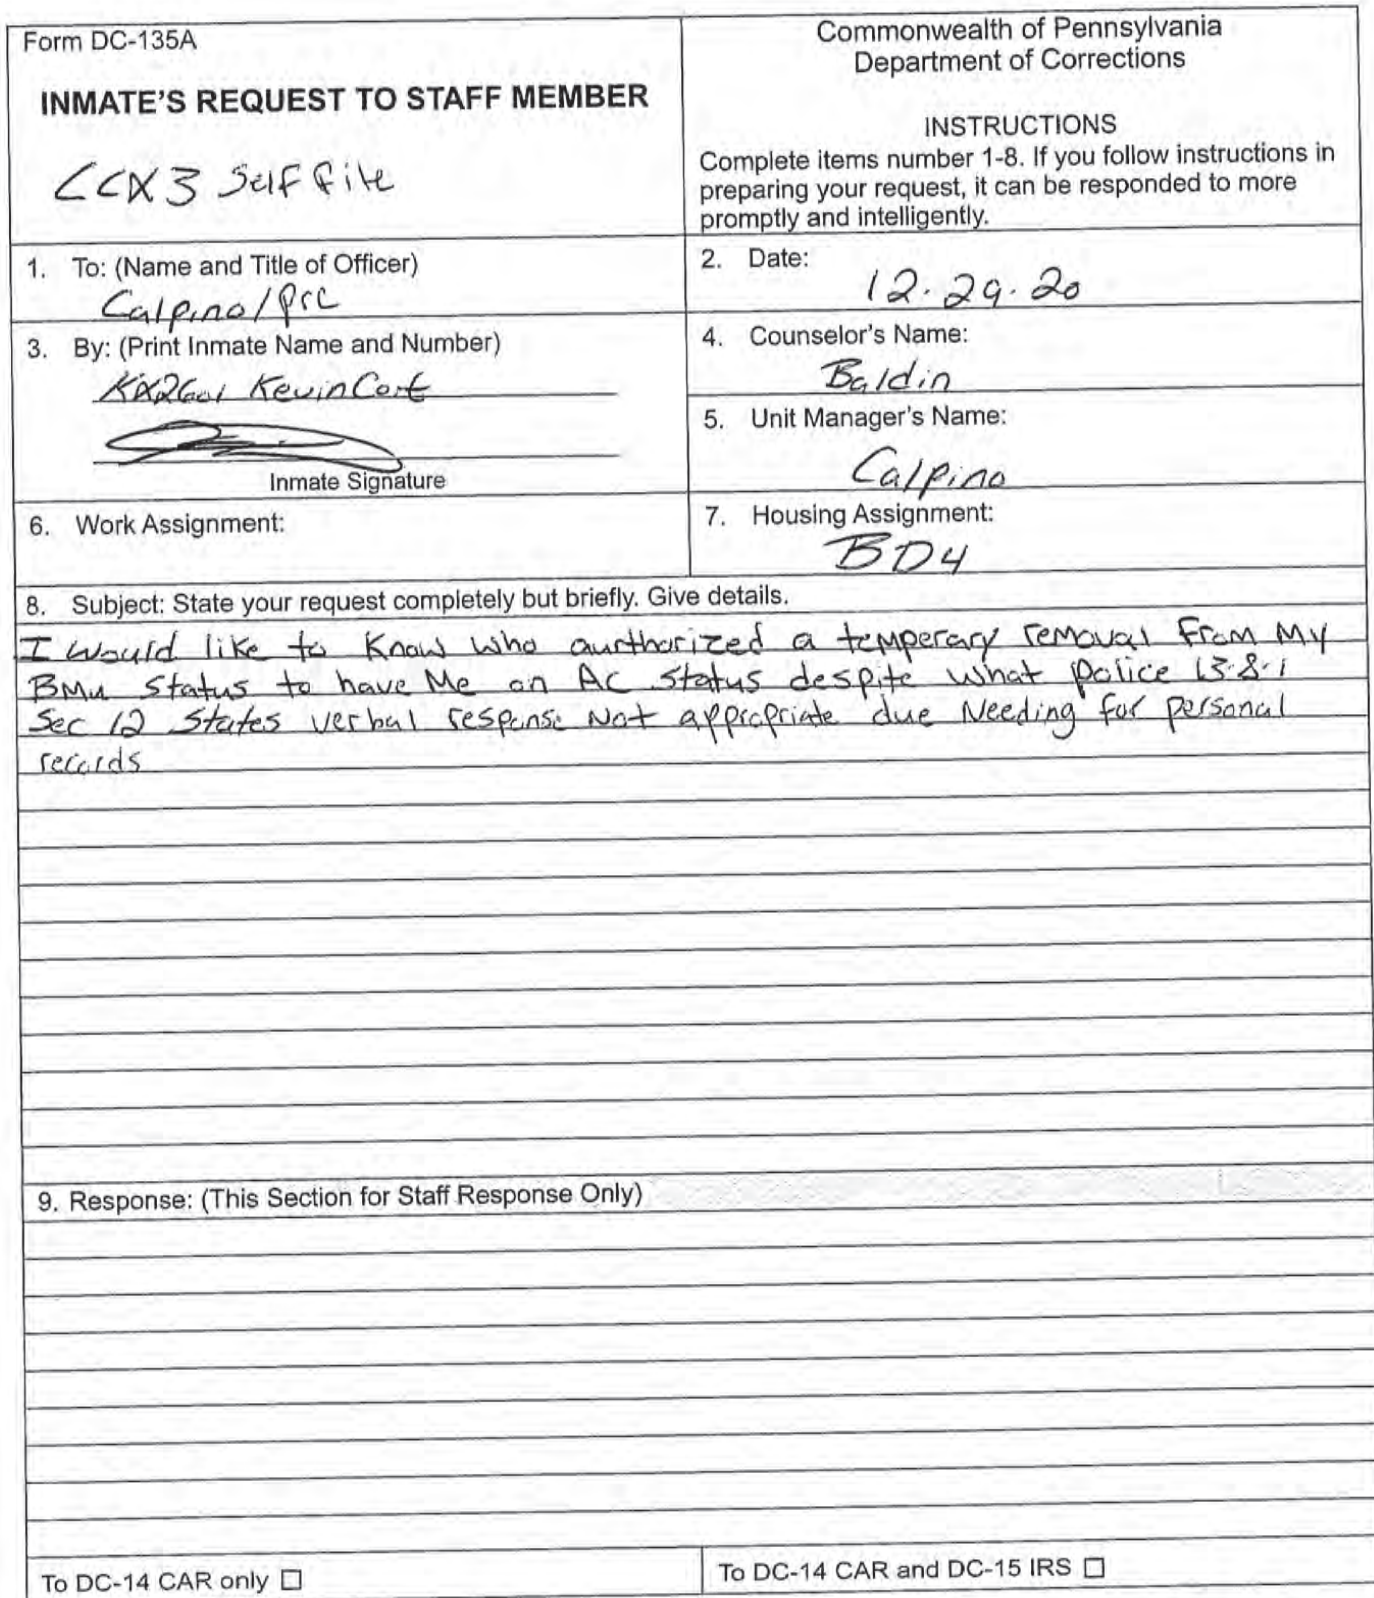 Form DC-135A
INMATE'S REQUEST TO STAFF MEMBER
CCX3 Self File
Commonwealth of Pennsylvania
Department of Corrections
INSTRUCTIONS
Complete items number 1-8. If you follow instructions in
preparing your request, it can be responded to more
promptly and intelligently.
1. To: (Name and Title of Officer)
Calpino/PRC
2. Date:
12.29.20
3. By: (Print Inmate Name and Number)
Kevin
Inmate Signature
4. Counselor's Name:
Baldin
5. Unit Manager's Name:
Calpino
6. Work Assignment:
7. Housing Assignment:
BD4
8. Subject: State your request completely but briefly. Give details.
I would like to Know Who aurthorized a temperary removal From My
BMU Status to have Me on AC Status despite what police 13.8.1
Sec 12 States verbal response Not appropriate due Needing for personal
records
9. Response: (This Section for Staff Response Only)
To DC-14 CAR only ☐
To DC-14 CAR and DC-15 IRS ☐